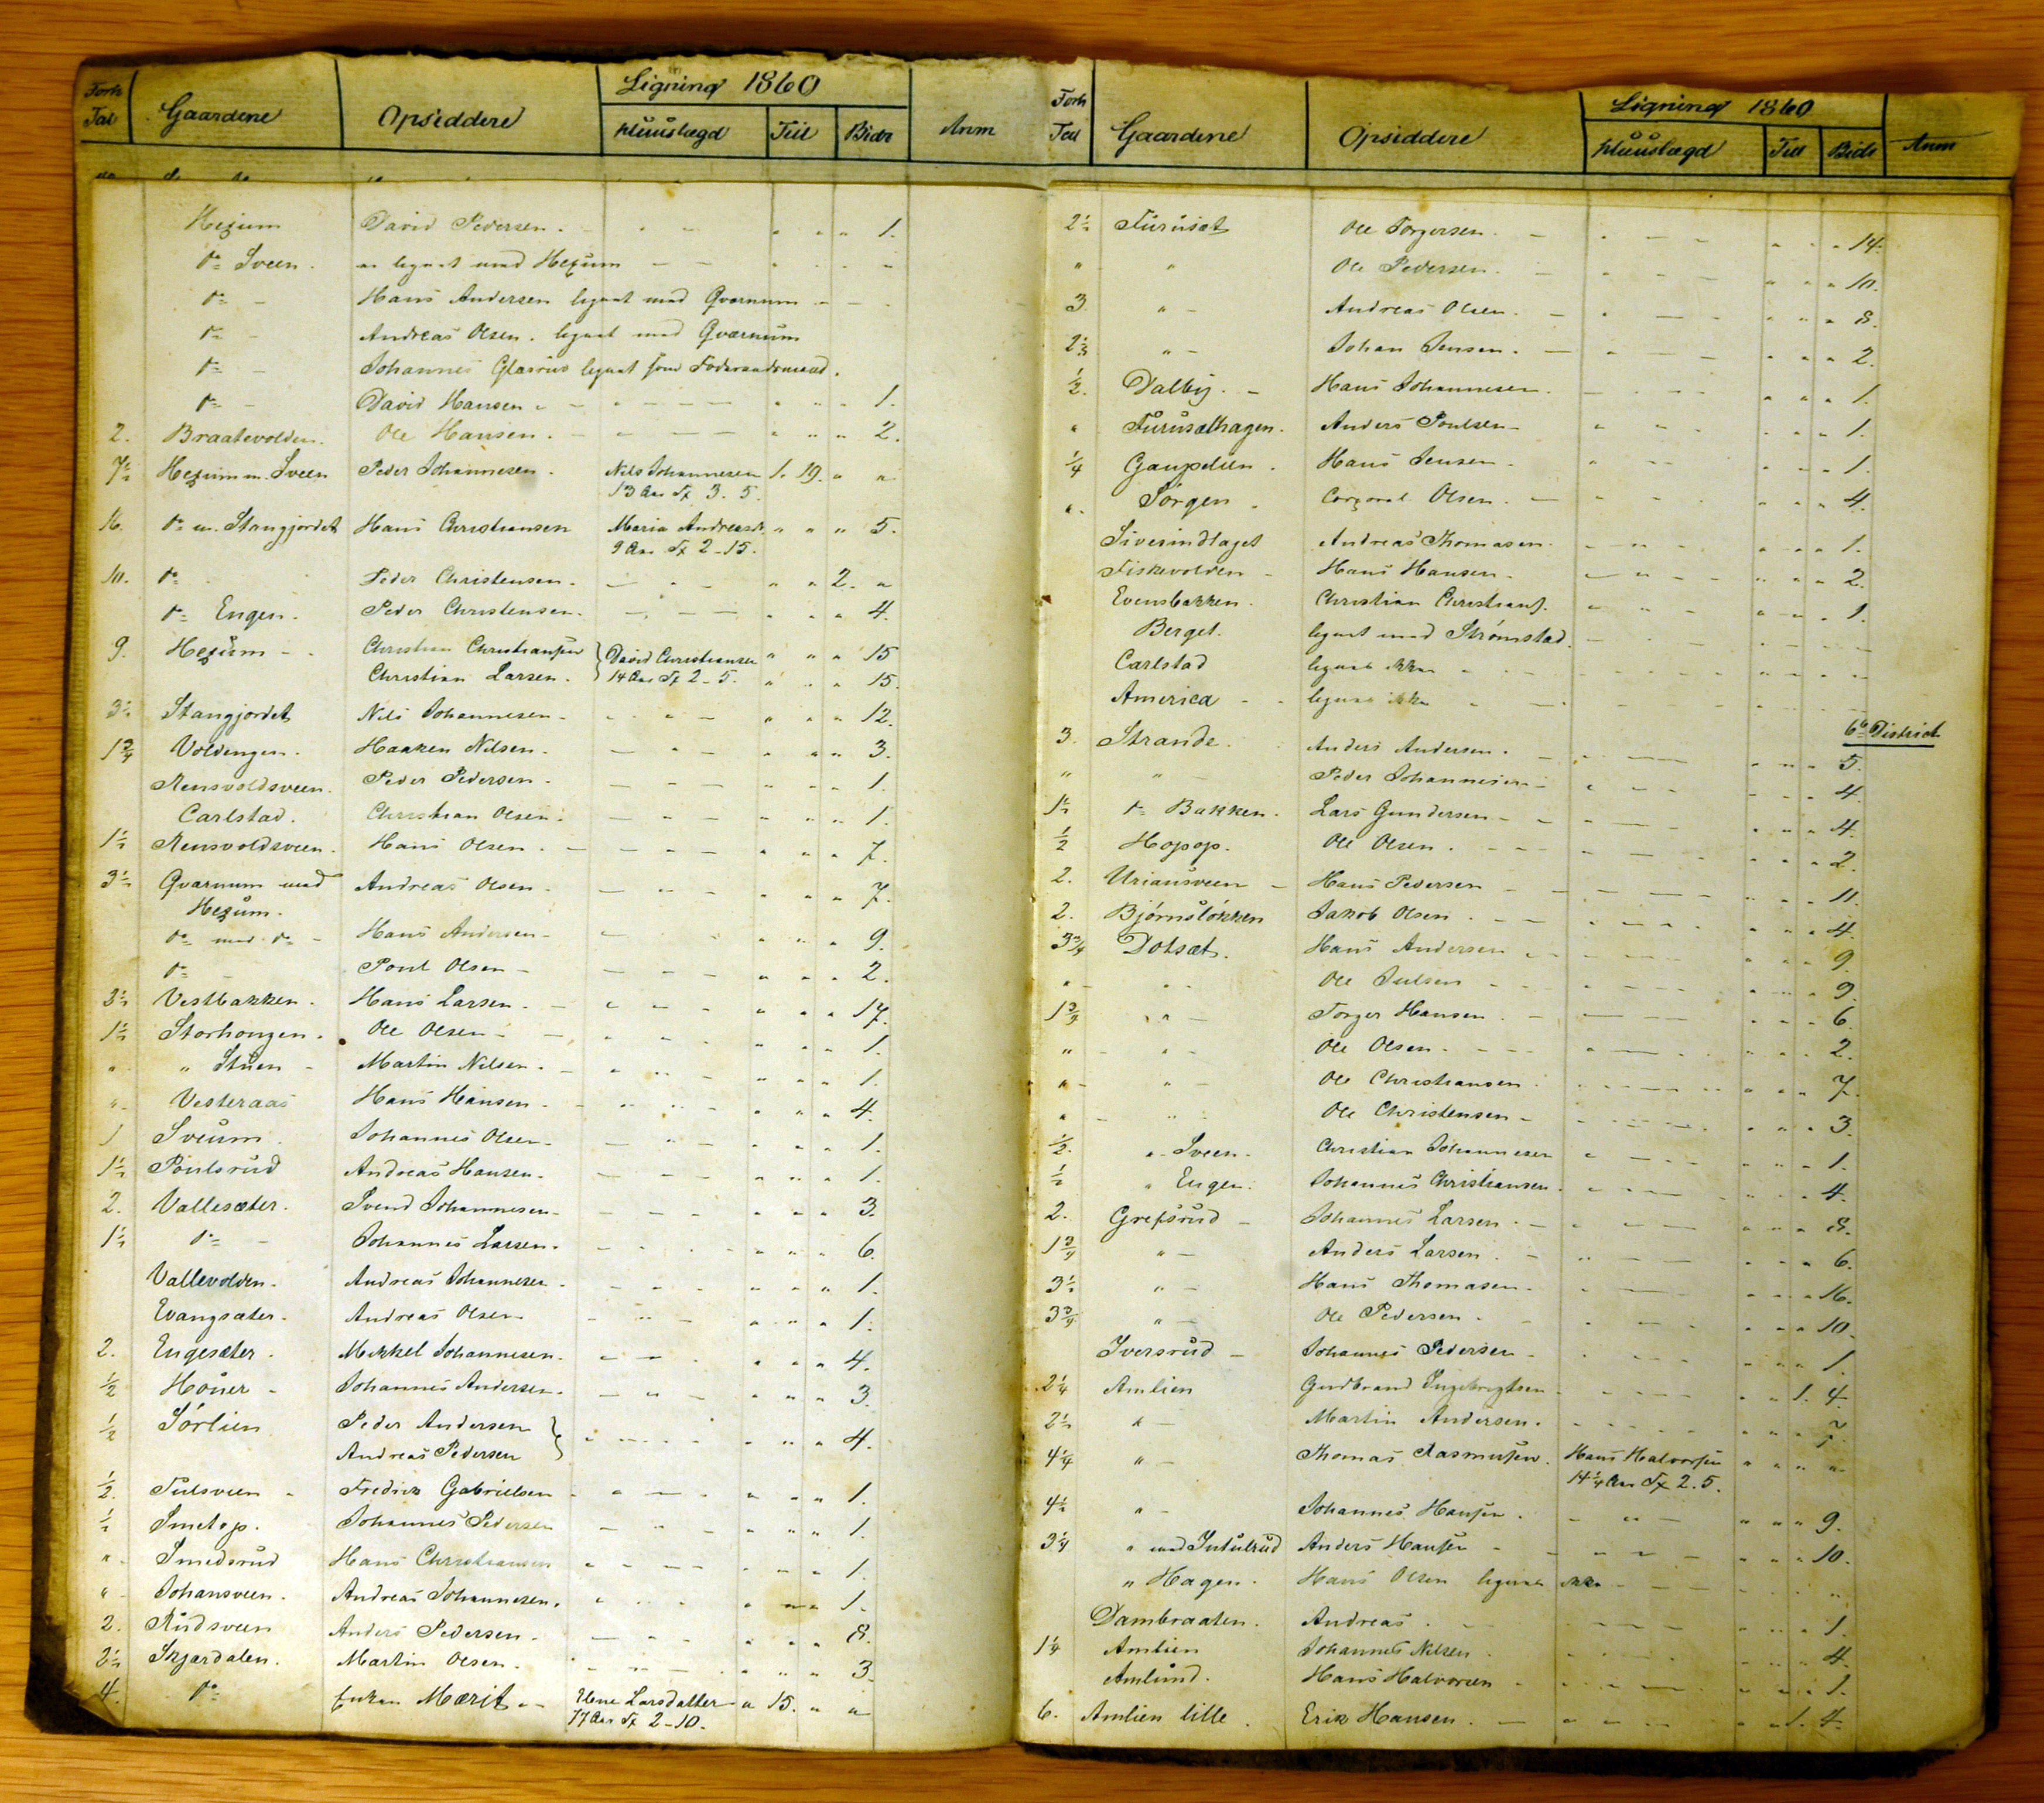 Forh Tal Gaardene Opsiddere Ligning 1860 Huuslægd Till Bidr Anm
Hexum David Pedersen. 1.
do Sveen. er lignet med Hexum
do Hans Andersen lignet med Qvarnum
do Andreas Olsen. lignet med Qværnum
do Johannes lignet som
do David Hansen 1.
2. Braatevolden. Ole Hansen. 2.
7½ Hexum m. Sveen Peder Johannesen. Nils Johannesen 1. 19. " "
13 Aar 3. 5.
16. do m. Stangjordet Hans Christiansen Maria " " " 5.
9 Aar 2-15.
10. do Peder Christensen. " " 2. "
do Engen. Peder Christensen. 4.
9. Hexum Christian Christiansen David Christiansen " " " 15
Christian Larsen. 14 Aar 2-5. " " " 15.
3½ Stangjordet Nils Johannesen 12.
1¾ Voldengen. Haaken Nilsen. 3.
Rensvoldsveen. Peder Pedersen. 1.
Carlstad. Christian Olsen. 1.
1½ Rensvoldsveen. Hans Olsen. 7.
3½ Qvarnum med Andreas Olsen 7.
Hexum.
do med do Hans Andersen 9.
do Poul Olsen 2.
3½ Vestbakken. Hans Larsen. 17.
1½ Storhougen. Ole Olsen 1.
" " Stuen Martin Nilsen. 1.
" Vesteraas Hans Hansen. 4.
1 Sveum Johannes Olsen 1.
1½ Poulsrud Andreas Hansen. 1.
2. Vallesæter. Svend Johannesen 3.
1½ do Johannes Larsen. 6.
Vallevolden. Andreas Johannesen. 1.
Evangsæter. Andreas Olsen 1.
2. Engesæter. Mikkel Johannesen. 4.
½ Høner Johannes Andersen. 3.
½ Sørlien Peder Andersen 4.
Andreas Pedersen
½ Julsveen Fredrik Gabrielsen 1.
½ Smetop. Johannes Pedersen 1.
" Smedsrud Hans Christiansen 1.
" Johansveen. Andreas Johannesen. 1.
2. Rudsveen Anders Pedersen. 8.
2½ Skjærdalen. Martin Olsen. 3.
4. do Enken Marit Elene Larsdatter " 15. " "
77 Aar 2-10.
Forh Tal Gaardene Opsiddere Ligning 1860 Huuslægd Till Bidr Anm
2½ Furuset Ole Torgersen. 14.
" " Ole Pedersen. 10.
3. " Andreas Olsen. 8.
" Johan Jensen. 2.
½ Dalby. Hans Johannesen. 1.
" Furusethagen. Anders Poulsen 1.
¼ Gaupelien. Hans Jensen. 1.
" Sørgen. Corporal Olsen. 4.
Siverindlaget Andreas Thomasen. 1.
Fiskevolden Hans Hansen. 2.
Evensbakken. Christian Christians. 1.
Berget. lignet med Strømstad.
Carlstad lignet ikke
America lignet ikke
6te District
3. Strande. Anders Andersen. 5.
" " Peder Johannesen 4.
1½ do Bakken. Lars Gundersen 4.
½ Hopop. Ole Olsen. 2.
2. Uriansveen Hans Pedersen 11.
2. Bjørnsløkken Jakob Olsen. 4.
3¾ Dotsæt. Hans Andersen 9.
" " Ole Julsen 9.
1¾ " Torger Hansen. 6.
" " Ole Olsen. 2.
" " Ole Christiansen 7.
" " Ole Christensen 3.
½ " Sveen. Christian Johannesen 1.
½ " Engen. Johannes Christiansen. 4.
2. Grefsrud Johannes Larsen. 8.
1¾ " Anders Larsen. 6.
3½ " Hans Thomasen. 16.
3¾ " Ole Pedersen. 10.
Iversrud Johannes Pedersen 1.
2¼ Amlien Gudbrand Ingebrigtsen 1. 4.
2½ " Martin Andersen. 7.
4¼ " Thomas Rasmusen. Hans Halvorsen " " " "
14¼ Aar 2. 5.
4½ " Johannes Hansen. 9.
3¼ " med Anders Hansen 10.
" Hagen. Hans Olsen lignet ikke
Dambraaten. Andreas 1.
1¼ Amlien Johannes Nilsen 4.
Amlund. Hans Halvorsen 1.
6. Amlien lille. Erik Hansen. 1. 4.